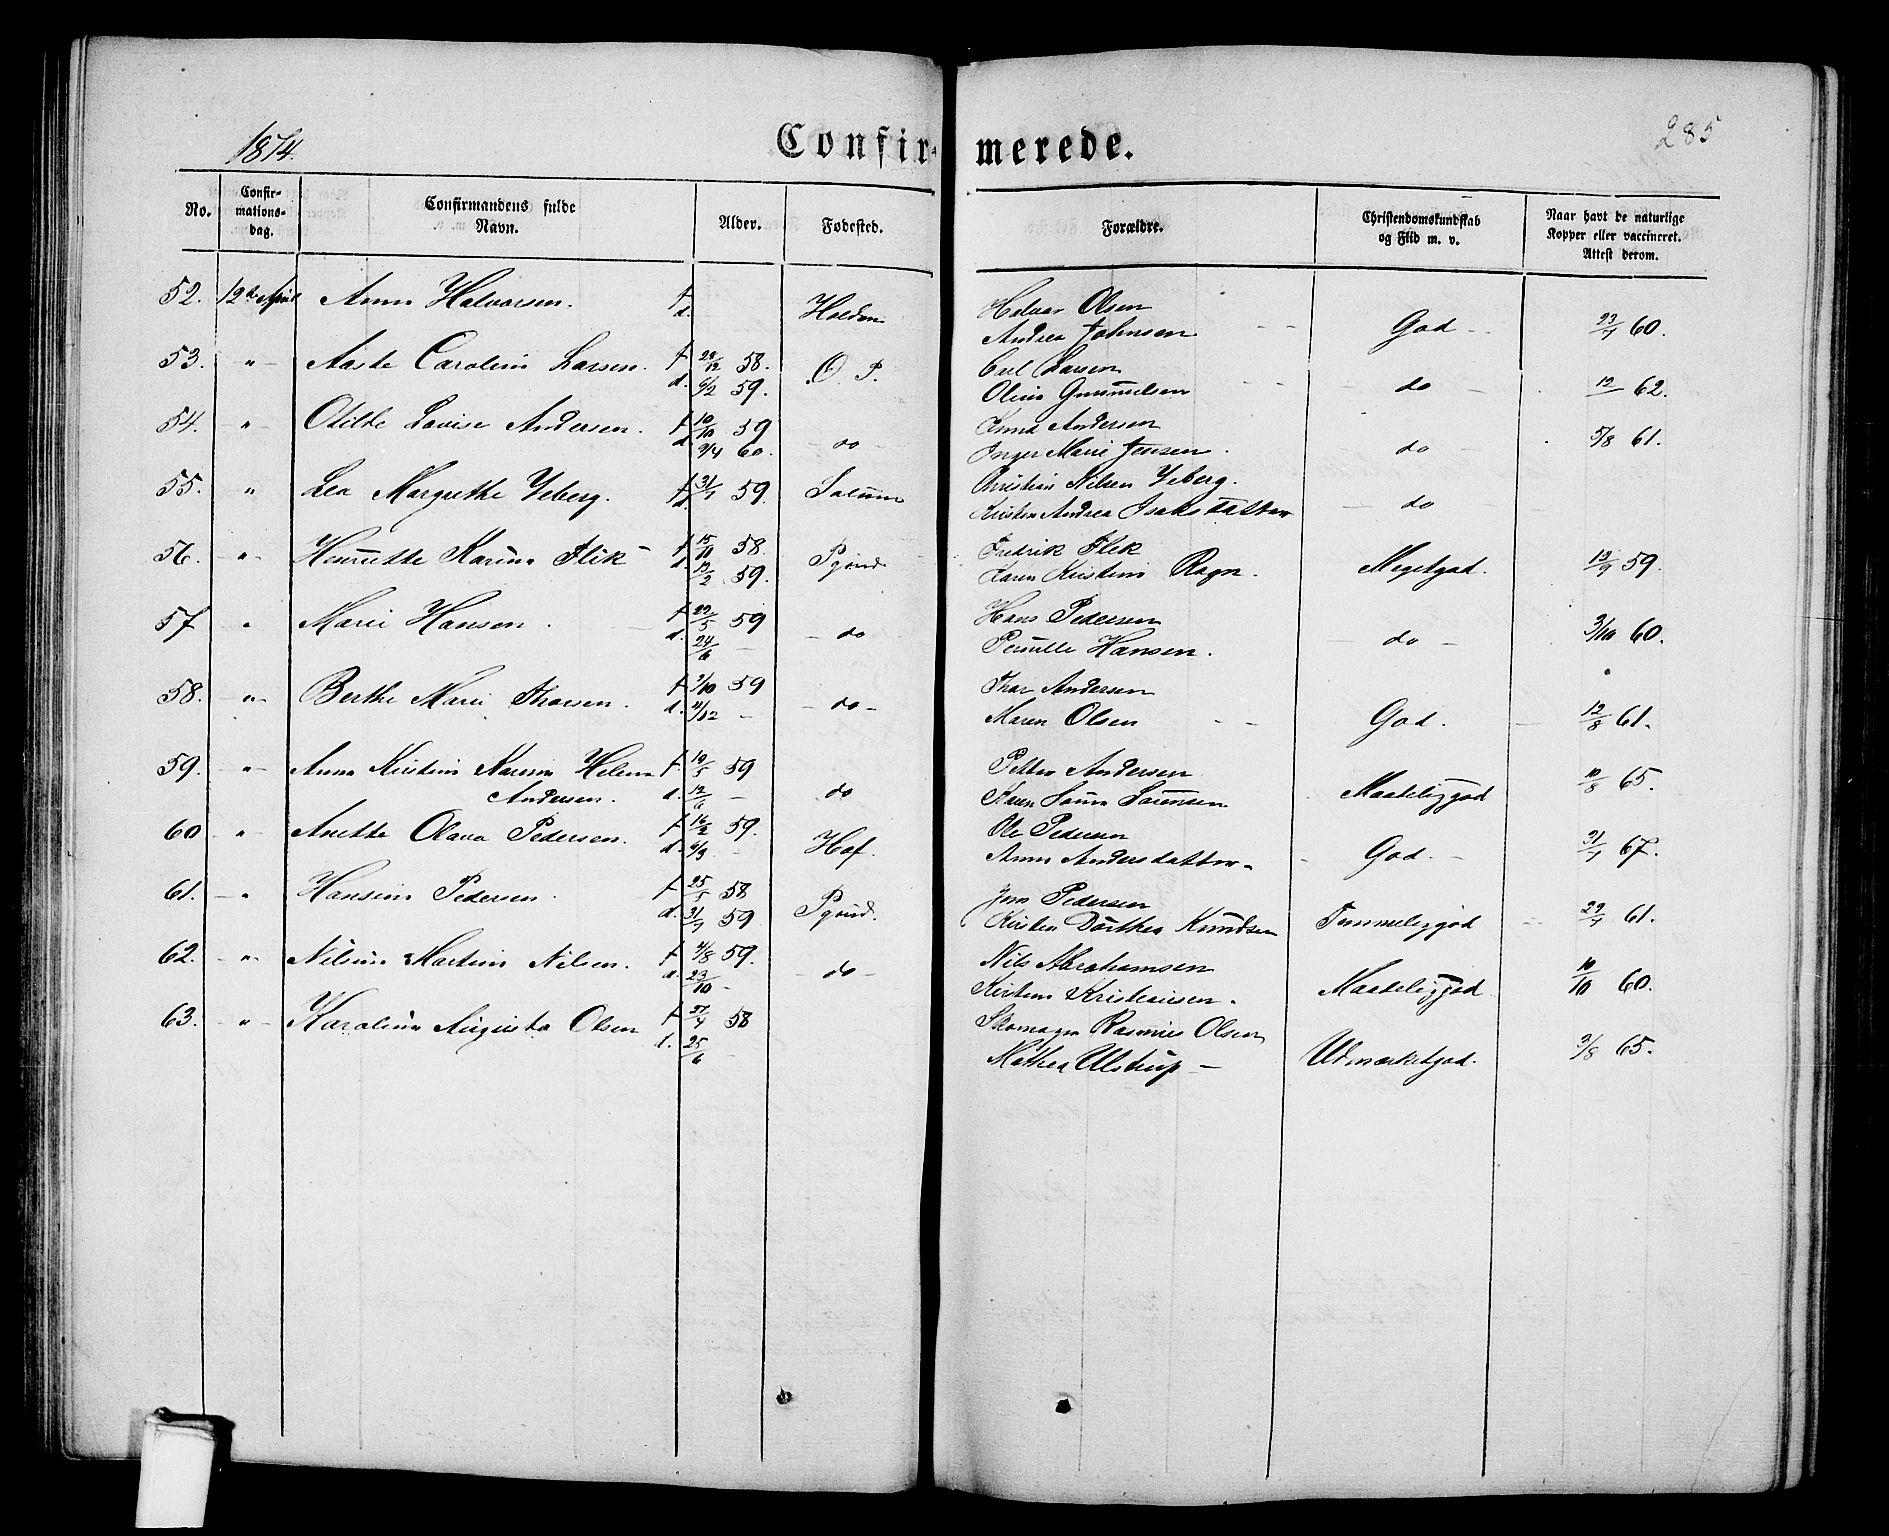 1874.
Confir-merede.
285
No.
Confir-
mations-
dag.
Confirmandens fulde
Navn.
Alder.
Fødested.
Forældre.
Christendomskundskab
og Flid m. v.
Naar havt de naturlige
Kopper eller vaccineret.
Attest derom.
52. 12te April Anna Halvorsen. f. Holden Halvor Olsen
d. Andrea Johnsen God 60.
53. " Aaste Caroline Larsen. f. 58. O. P. Carl Larsen
d. 6/2 59. Oline Gunnulsen do 62.
54. " Otilde Lovise Andersen. f. 10/10 59 Knud Andersen
d. 3/4 60. do Inger Marie Jensen. do 5/8 61.
55. " Lea Margrethe Yeberg. f. 31/1 59. Solum Christian Nilsen Yeberg.
d. Kirsten Andrea Isaksdatter do
56. " Henriette Karine Flik f. 15/11 58. Pgrund Fredrik Flek
d. 13/2 59. Karen Kirstine Ragn. Megetgod. 13/9 59.
57 " Marie Hansen. f. 22/5 59 Hans Pedersen
d. 24/6 do Pernille Hansen. do 3/10 60.
58. " Berthe Marie Thorsen. f. 2/10 59 Thor Andersen
d. 4/12 do Maren Olsen God. 12/8 61.
59. " Anna Kirstine Karine Helene f. 19/5 59 Petter Andersen
Andersen. d. 12/6 do Karen Soum Sørensen Maateliggod 10/8 65.
60 " Anette Olava Pedersen. f. 16/2 59. Hof. Ole Pedersen
d. 6/3 Anne Andersdatter God. 67.
61. " Hansine Pedersen. f. 25/5 58 Jens Pedersen
d. 59 Pgrund. Kirsten Dorthea Knudsen Temmeliggod 61.
62. " Nilsine Martine Nilsen. f. 4/8 59. Nils Abrahamsen
d. 23/10 do Kirstine Kristiansen. Maateliggod 10/10 60.
63. " Karoline Augusta Olsen f. 27/4 58 Skomager Rasmus Olsen
d. 25/6 Mathea Ulstrup Udmærketgod. 3/8 65.